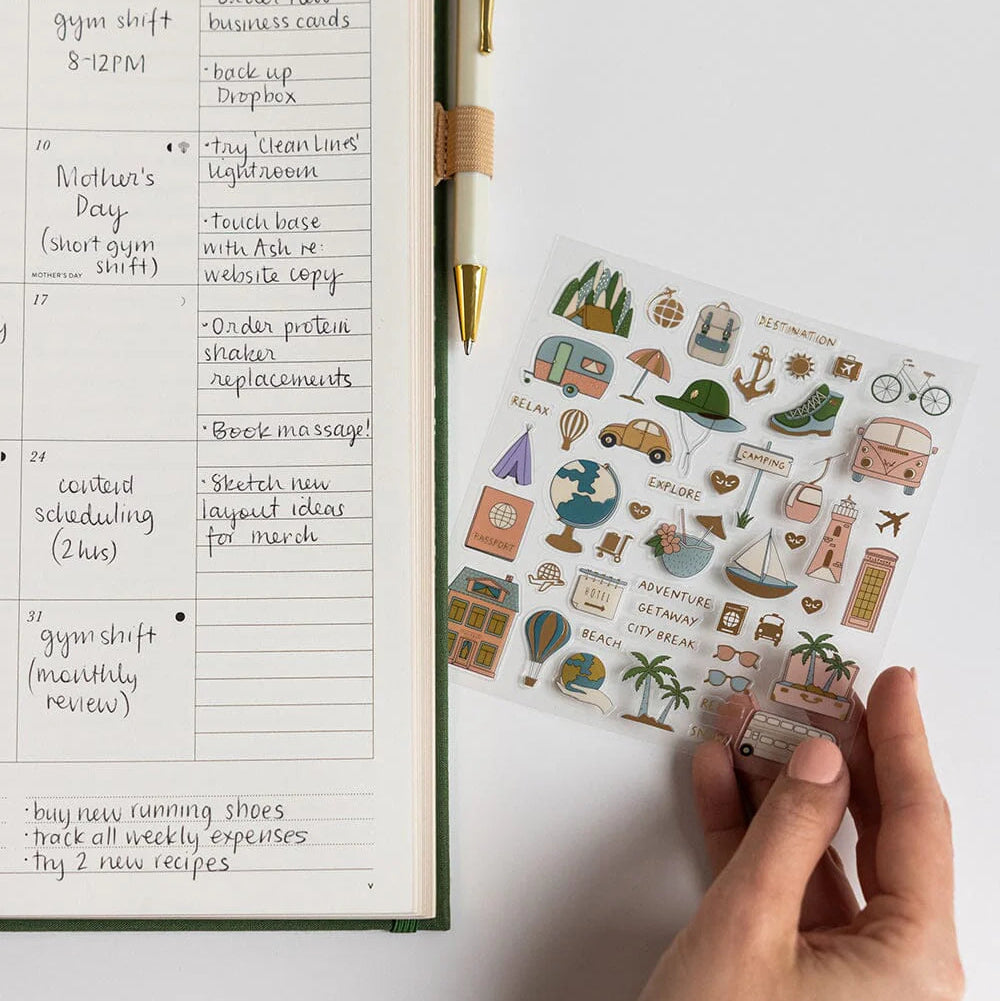 gym shift
8-12PM
10
Mother's
Day
(short gym
shift)
MOTHER'S DAY
17
24
content
scheduling
(2hrs)
31
gym shift
(monthly
review)
business cards
·back up
Dropbox
·try 'Clean Lines'
lightroom
·touch base
with Ash re:
website copy
·Order protein
shaker
replacements
·Book massage!
·Sketch new
layout ideas
for merch
·buy new running shoes
·track all weekly expenses
·try 2 new recipes
v
DESTINATION
RELAX
CAMPING
EXPLORE
PASSPORT
TELEPHONE
HOTEL
ADVENTURE
GETAWAY
CITY BREAK
BEACH